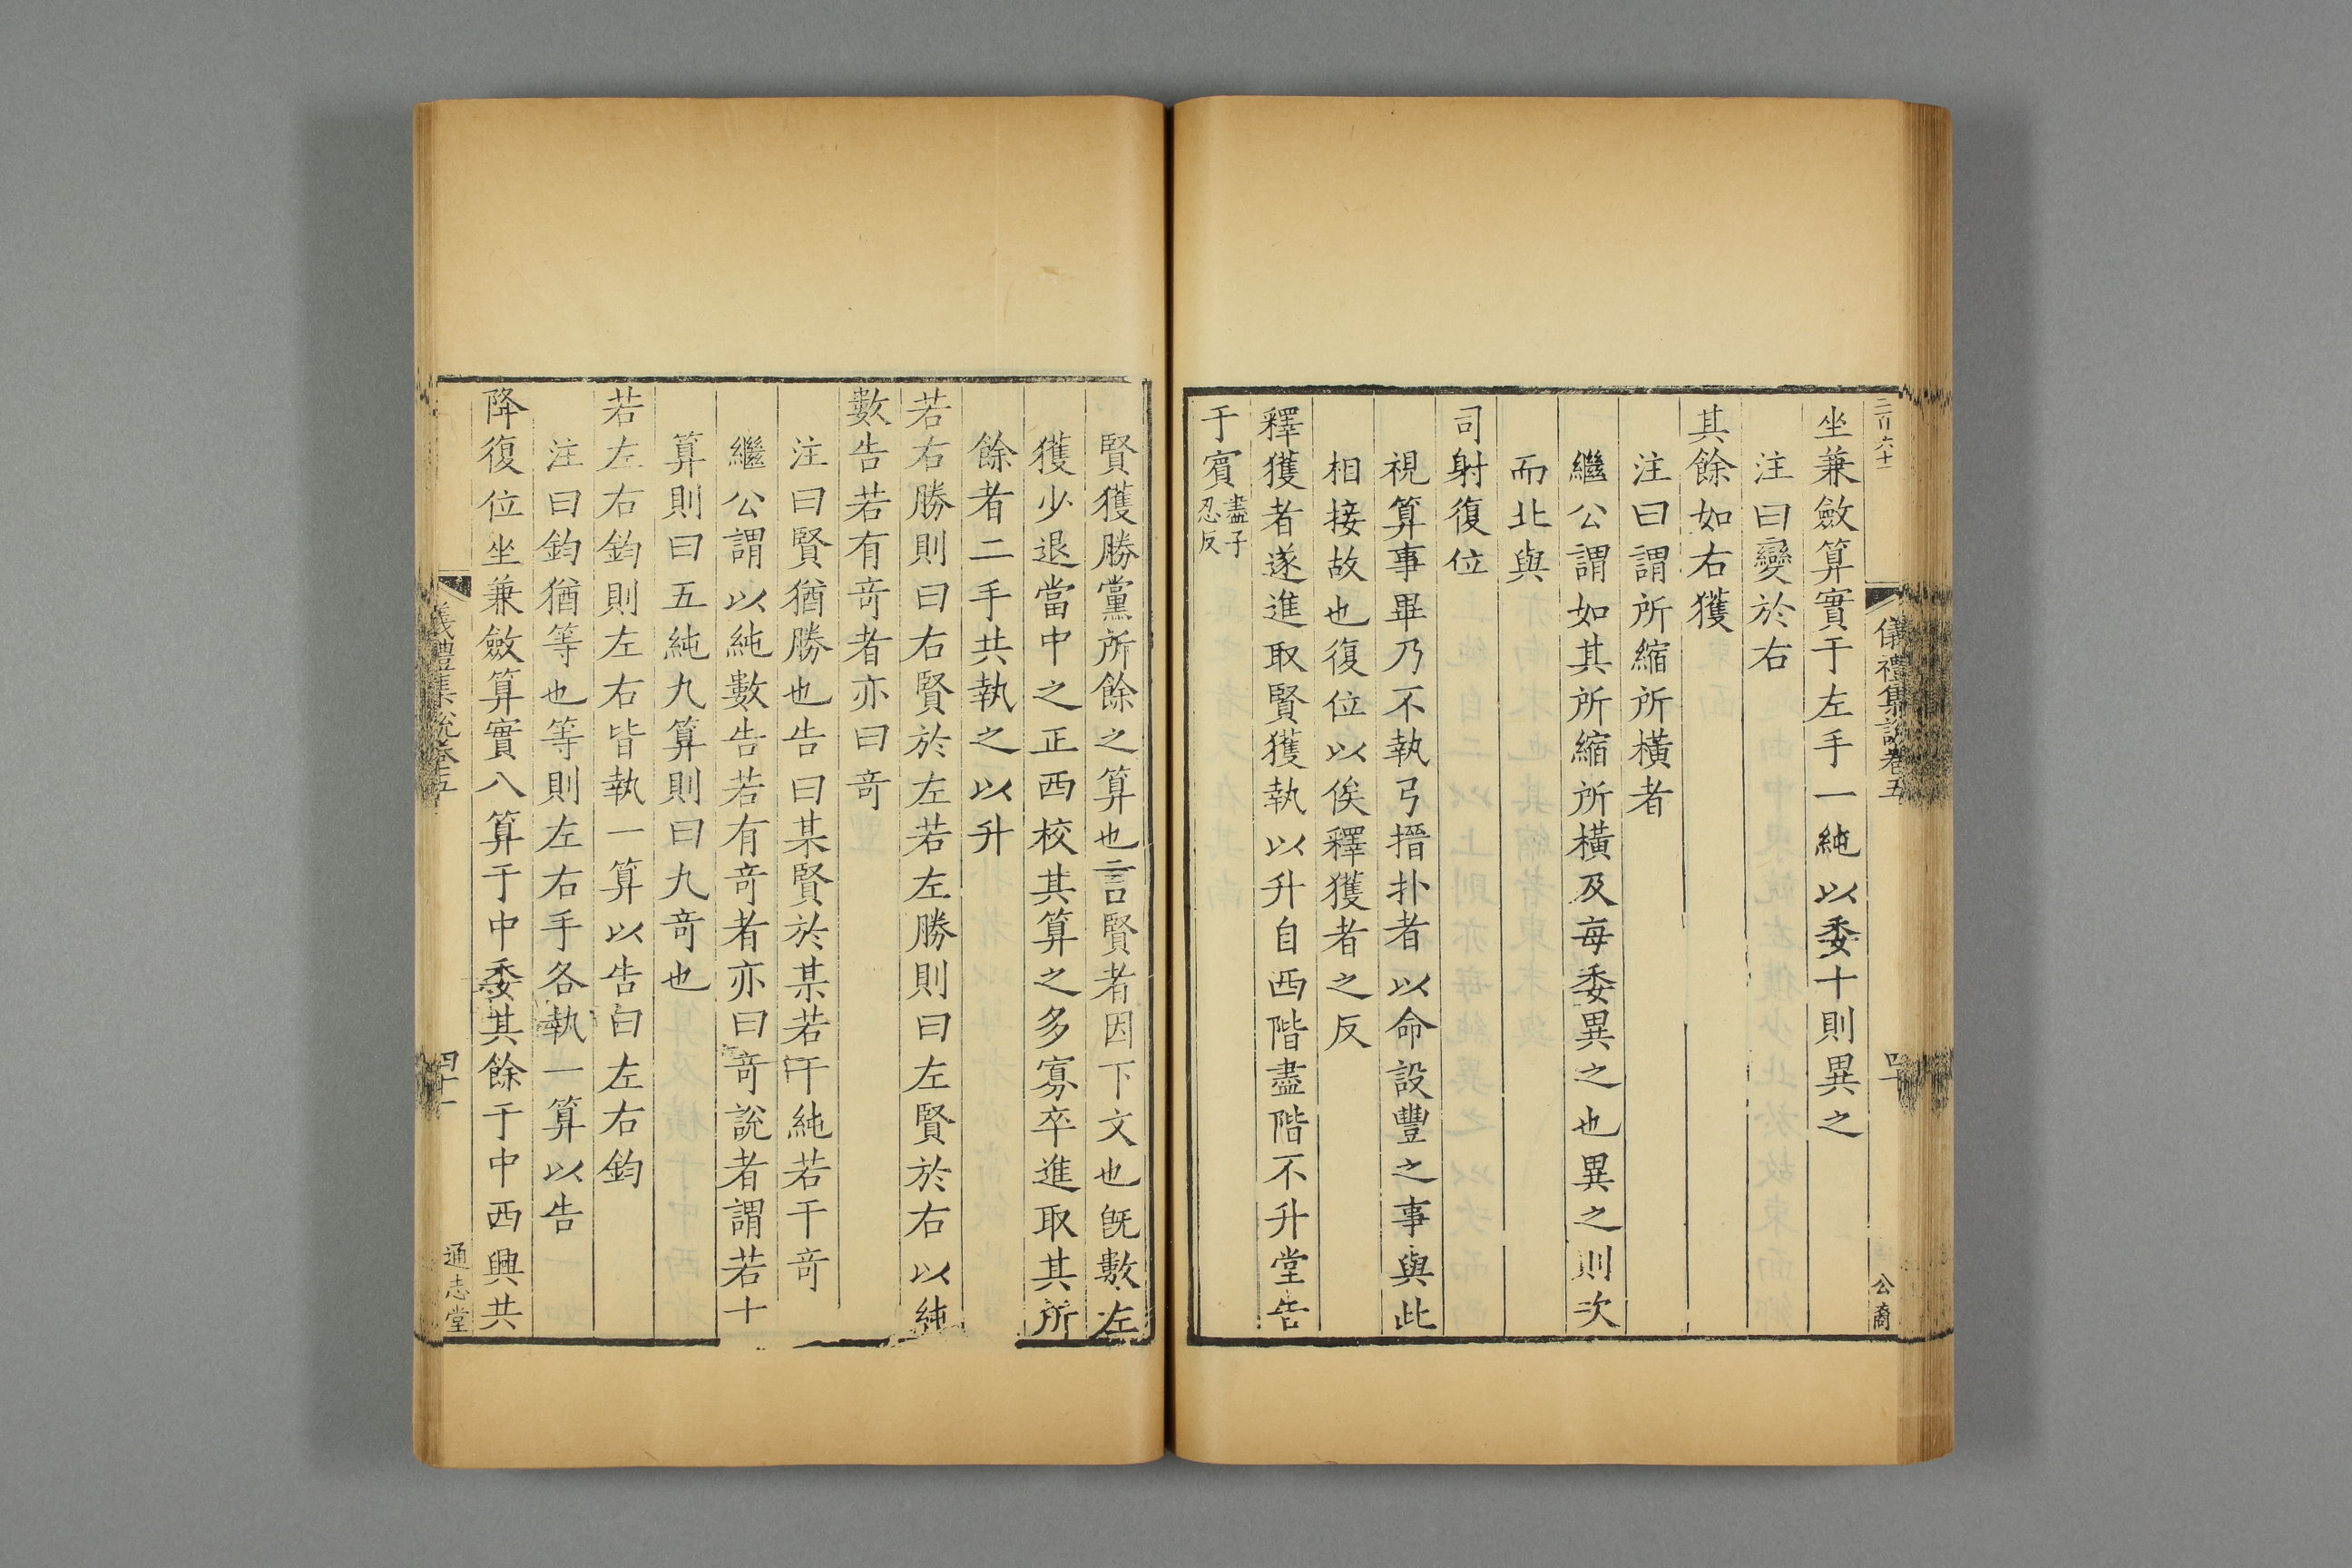 二百六十
儀禮集說卷五
四十
公裔
坐兼斂算實于左手一純以委十則異之
注曰變於右
其餘如右獲
注曰謂所縮所橫者
繼公謂如其所縮所橫及每委異之也異之則次
而北與
司射復位
視算事畢乃不執弓搢扑者以命設豐之事與此
相接故也復位以俟釋獲者之反
釋獲者遂進取賢獲執以升自西階盡階不升堂告
于賓盡子忍反
賢獲勝黨所餘之算也言賢者因下文也旣數左
獲少退當中之正西校其算之多寡卒進取其所
餘者二手共執之以升
若右勝則曰右賢於左若左勝則曰左賢於右以純
數告若有奇者亦曰奇
注曰賢猶勝也告曰某賢於某若干純若干奇
繼公謂以純數告若有奇者亦曰奇說者謂若十
算則曰五純九算則曰九奇也
若左右鈞則左右皆執一算以告曰左右鈞
注曰鈞猶等也等則左右手各執一算以告
降復位坐兼斂算實八算于中委其餘于中西興共
儀禮集說卷五
四十一
通志堂